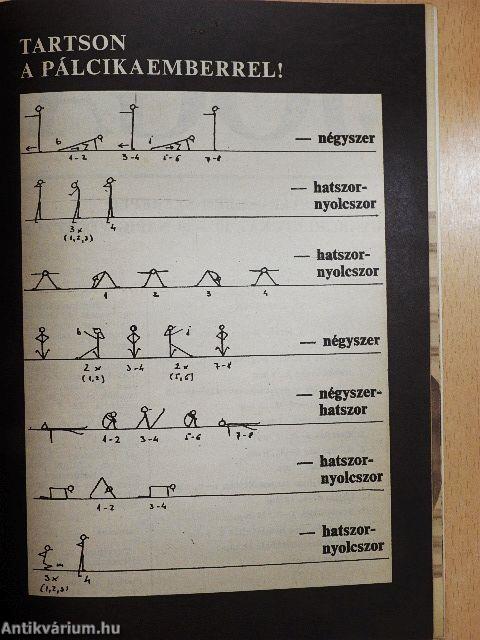 TARTSON
A PÁLCIKAEMBERREL!
b i — négyszer
1-2 3-4 5-6 7-8
— hatszor-
nyolcszor
3x 4
(1,2,3)
— hatszor-
nyolcszor
1 2 3 4
b i — négyszer
2x 3-4 2x 7-8
(1,2) (5,6)
— négyszer-
hatszor
1-2 3-4 5-6 7-8
— hatszor-
nyolcszor
1-2 3-4
— hatszor-
nyolcszor
3x 4
(1,2,3)
Antikvárium.hu